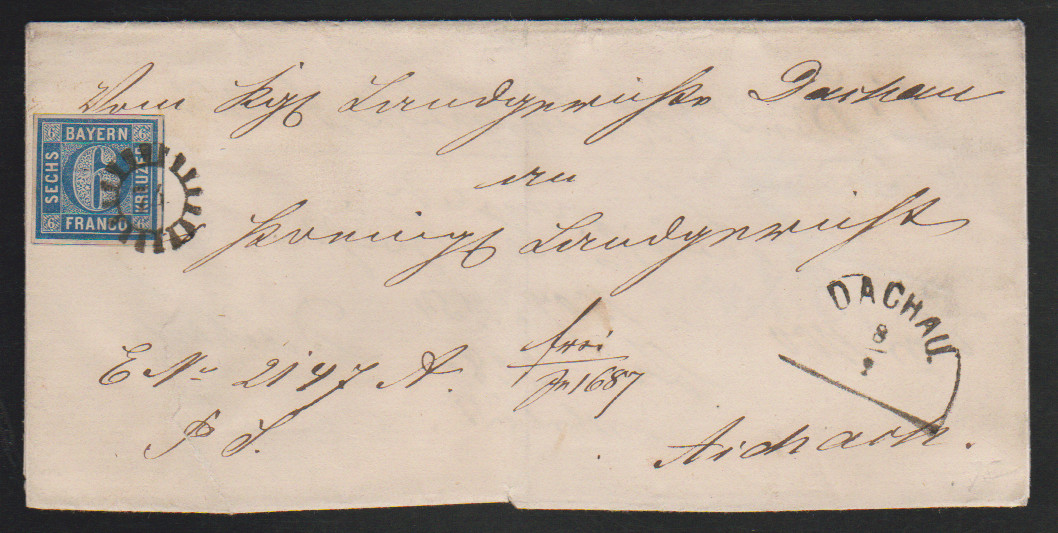 Vom Kgl Landgerichte Dachau
an
Königl Landgericht
BAYERN
SECHS
6
KREUZER
FRANCO
6 6 6 6
DACHAU.
8
E No 2147 A.
frei
1687
P S.
Aichach.